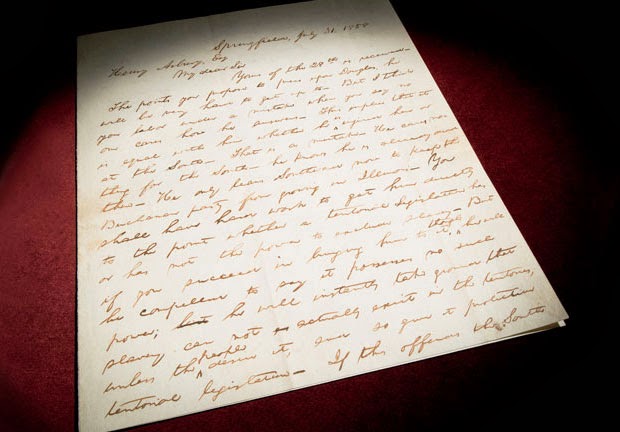 Springfield, July 31. 1858.
Henry Asbury, Esq
My dear Sir
Yours of the 28th is received.
The points you propose to press upon Douglas, he
will be very hard to get up to. But I think
you labor under a mistake when you say no
one cares how he answers. This implies that it
is equal with him whether he is injured here or
at the South. That is a mistake. He cares noth-
ing for the South— he knows he is already dead
there— He only leans Southward now to keep the
Buchanan party from growing in Illinois— You
shall have hard work to get him directly
to the point whether a territorial Legislature has
or has not the power to exclude slavery— But
if you succeed in bringing him to it, though he will
be compelled to say it possesses no such
power; he will instantly take ground that
slavery can not actually exist in the territories,
unless the people desire it, and so give it protective
territorial legislation— If this offends the South